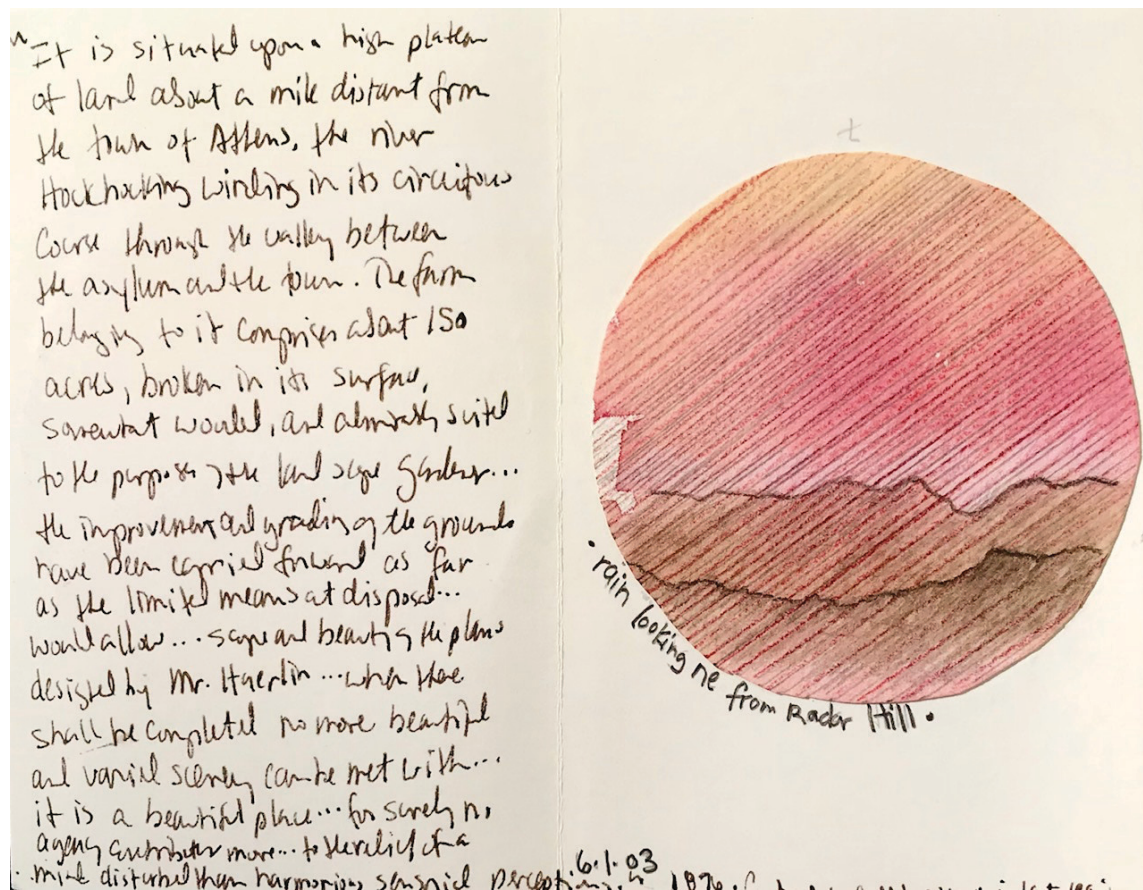 "It is situated upon a high plateau
of land about a mile distant from
the town of Athens, the river
Hockhocking winding in its circuitous
course through the valley between
the asylum and the town. The farm
belonging to it comprises about 150
acres, broken in its surface,
somewhat wooded, and admirably suited
to the purposes of the landscape gardener...
the improvement and grading of the grounds
have been carried forward as far
as the limited means at disposal...
would allow... scope and beauty of the plans
designed by Mr. Haerlin... when these
shall be completed no more beautiful
and varied scenery can be met with...
it is a beautiful place... for surely no
agency contributes more... to the relief of a
mind disturbed than harmonious sensorial perceptions."
6.1.03
• rain looking ne from Radar Hill •